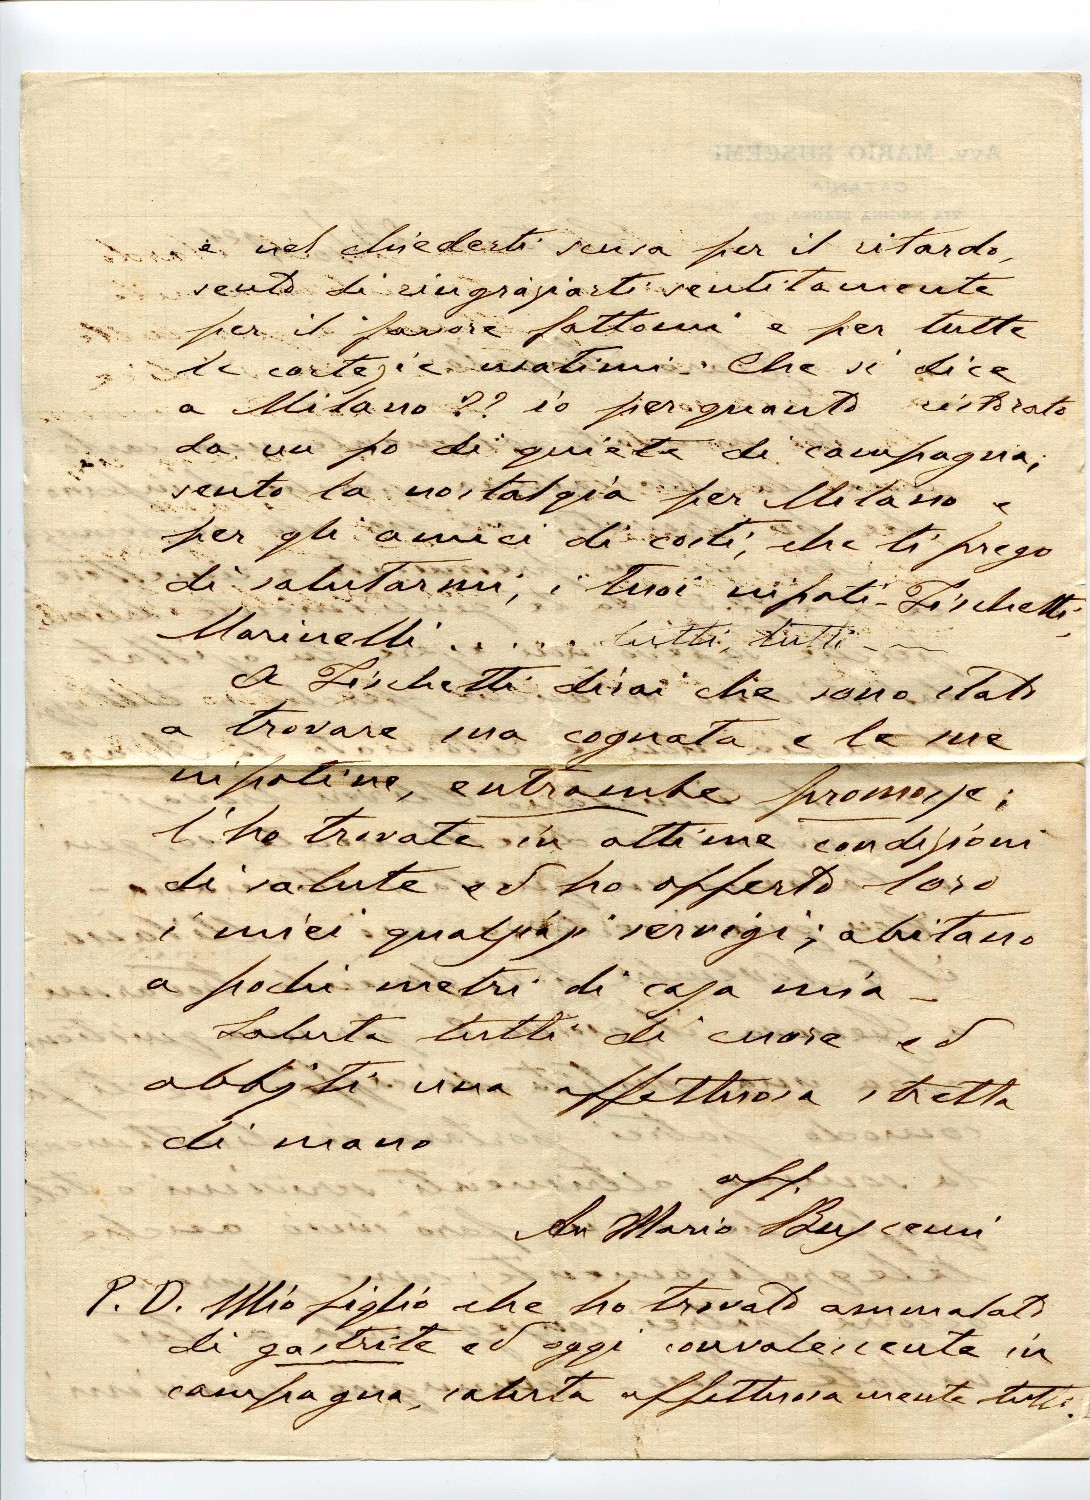 e nel chiederti scusa per il ritardo,
sento di ringraziarti sentitamente
per il favore fattomi e per tutte
le cortezie usatimi - Che si dice
a Milano?? io per quanto ristorato
da un po di quiete di campagna,
sento la nostalgia per Milano e
per gli amici di costì, che ti prego
di salutarmi; i tuoi nipoti - Fischetti,
Marinelli . . . . tutti, tutti - -
A Fischetti dirai che sono stato
a trovare sua cognata e le sue
nipotine, entrambe promosse;
l'ho trovate in ottime condizioni
di salute ed ho offerto loro
i miei qualsiasi servigi; abitano
a pochi metri di casa mia -
Saluta tutti di cuore ed
abbiti una affettuosa stretta
di mano
aff.
Mario Buscemi
P. D. Mio figlio che ho trovato ammalato
di gastrite ed oggi convalescente in
campagna, saluta affettuosamente tutti.
Avv. MARIO BUSCEMI
CATANIA